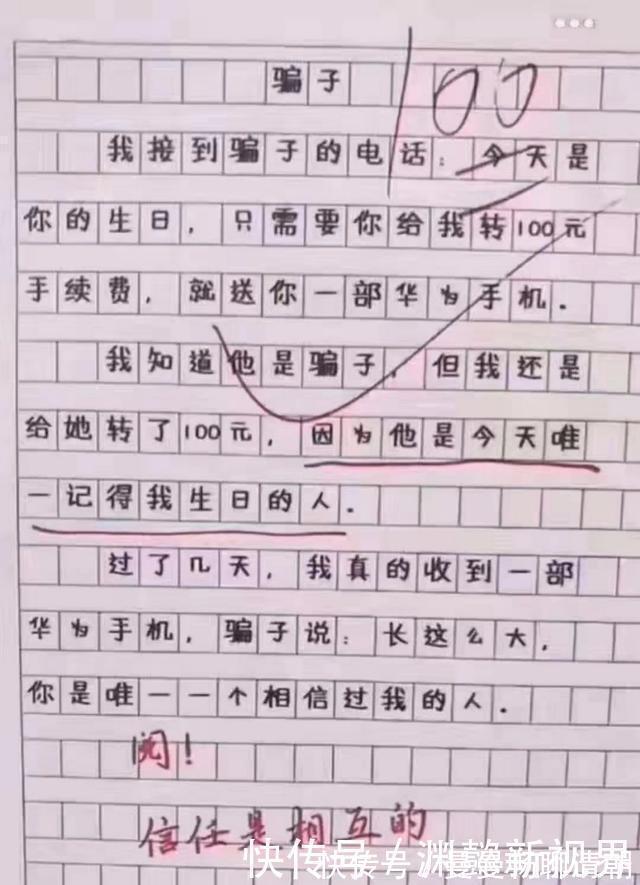 骗子
100
我接到骗子的电话：今天是
你的生日，只需要你给我转100元
手续费，就送你一部华为手机．
我知道他是骗子，但我还是
给她转了100元，因为他是今天唯
一记得我生日的人．
过了几天，我真的收到一部
华为手机，骗子说：长这么大，
你是唯一一个相信过我的人．
阅！
信任是相互的
快传号／渊懿新视界